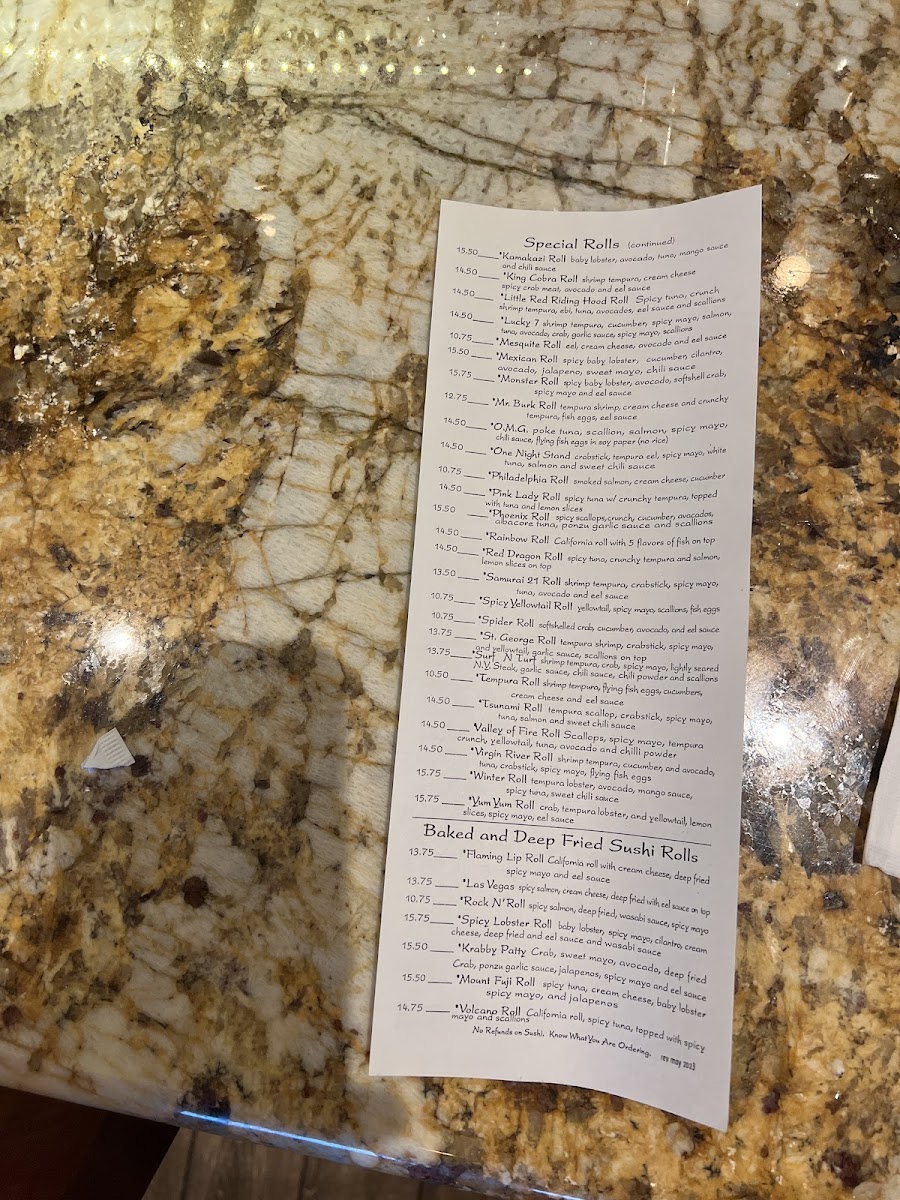 Special Rolls (continued)
15.50____*Kamakazi Roll baby lobster, avocado, tuna, mango sauce
and chili sauce
14.50____*King Cobra Roll shrimp tempura, cream cheese
spicy crab meat, avocado and eel sauce
14.50____*Little Red Riding Hood Roll Spicy tuna, crunch
shrimp tempura, ebi, tuna, avocados, eel sauce and scallions
14.50____*Lucky 7 shrimp tempura, cucumber, spicy mayo, salmon,
tuna, avocado, crab, garlic sauce, spicy mayo, scallions
10.75____*Mesquite Roll eel, cream cheese, avocado and eel sauce
15.50____*Mexican Roll spicy baby lobster, cucumber, cilantro,
avocado, jalapeno, sweet mayo, chili sauce
15.75____*Monster Roll spicy baby lobster, avocado, softshell crab,
spicy mayo and eel sauce
12.75____*Mr. Burk Roll tempura shrimp, cream cheese and crunchy
tempura, fish eggs, eel sauce
14.50____*O.M.G. poke tuna, scallion, salmon, spicy mayo,
chili sauce, flying fish eggs in soy paper (no rice)
14.50____*One Night Stand crabstick, tempura eel, spicy mayo, white
tuna, salmon and sweet chili sauce
10.75____*Philadelphia Roll smoked salmon, cream cheese, cucumber
14.50____*Pink Lady Roll spicy tuna w/ crunchy tempura, topped
with tuna and lemon slices
15.50____*Phoenix Roll spicy scallops, crunch, cucumber, avocados,
abacore tuna, ponzu garlic sauce and scallions
14.50____*Rainbow Roll California roll with 5 flavors of fish on top
14.50____*Red Dragon Roll spicy tuna, crunchy tempura and salmon,
lemon slices on top
13.50____*Samurai 21 Roll shrimp tempura, crabstick, spicy mayo,
tuna, avocado and eel sauce
10.75____*Spicy Yellowtail Roll yellowtail, spicy mayo, scallions, fish eggs
10.75____*Spider Roll softshelled crab, cucumber, avocado, and eel sauce
13.75____*St. George Roll tempura shrimp, crabstick, spicy mayo,
and yellowtail, garlic sauce, scallions on top
13.75____*Surf N Turf shrimp tempura, crab, spicy mayo, lightly seared
N.Y. Steak, garlic sauce, chili sauce, chili powder and scallions
10.50____*Tempura Roll shrimp tempura, flying fish eggs, cucumbers,
cream cheese and eel sauce
14.50____*Tsunami Roll tempura scallop, crabstick, spicy mayo,
tuna, salmon and sweet chili sauce
14.50____*Valley of Fire Roll Scallops, spicy mayo, tempura
crunch, yellowtail, tuna, avocado and chilli powder
14.50____*Virgin River Roll shrimp tempura, cucumber, and avocado,
tuna, crabstick, spicy mayo, flying fish eggs
15.75____*Winter Roll tempura lobster, avocado, mango sauce,
spicy tuna, sweet chili sauce
15.75____*Yum Yum Roll crab, tempura lobster, and yellowtail, lemon
slices, spicy mayo, eel sauce
Baked and Deep Fried Sushi Rolls
13.75____*Flaming Lip Roll California roll with cream cheese, deep fried
spicy mayo and eel sauce
13.75____*Las Vegas spicy salmon, cream cheese, deep fried with eel sauce on top
10.75____*Rock N' Roll spicy salmon, deep fried, wasabi sauce, spicy mayo
15.75____*Spicy Lobster Roll baby lobster, spicy mayo, cilantro, cream
cheese, deep fried and eel sauce and wasabi sauce
15.50____*Krabby Patty Crab, sweet mayo, avocado, deep fried
Crab, ponzu garlic sauce, jalapenos, spicy mayo and eel sauce
15.50____*Mount Fuji Roll spicy tuna, cream cheese, baby lobster
spicy mayo, and jalapenos
14.75____*Volcano Roll California roll, spicy tuna, topped with spicy
mayo and scallions
No Refunds on Sushi. Know What You Are Ordering. rev may 2023